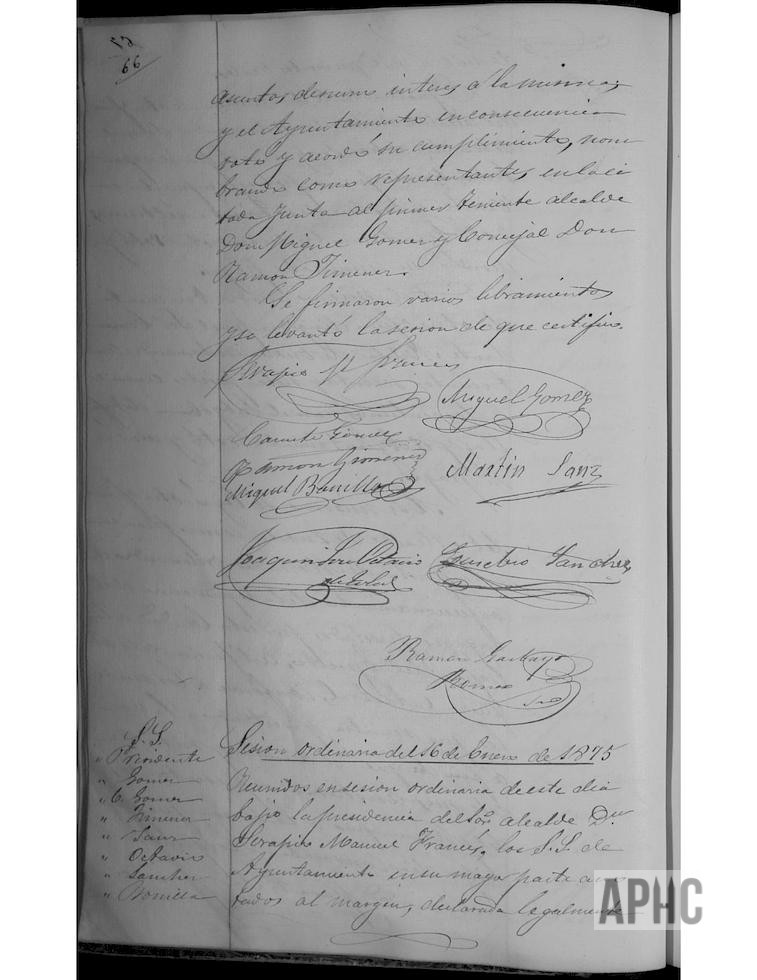 66
asuntos de sumo interes a la misma;
y el Ayuntamiento en consecuencia
voto y acordó su cumplimiento, nom
brando como representantes en la ci
tada Junta al primer teniente alcalde
Don Miguel Gomez y Concejal Don
Ramon Jimenez.
Se firmaron varios libramientos
y se levantó la sesion de que certifico.
Serapio M Frances
Miguel Gomez
Ramon Gimenez
Martin Sanz
Miguel Bonilla
Joaquin Octavio
de Toledo
Eusebio Sanchez
Ramon Garbayo
Gomez
Srio
S.S.
" Presidente
" Gomez
" C. Gomez
" Jimenez
" Sanz
" Octavio
" Sanchez
" Bonilla
Sesion ordinaria del 16 de Enero de 1875
Reunidos en sesion ordinaria de este dia
bajo la presidencia del Sor. alcalde Dn
Serapio Manuel Francés, los S.S. de
Ayuntamiento en su mayor parte ano
tados al margen, declarada legalmente
APHC